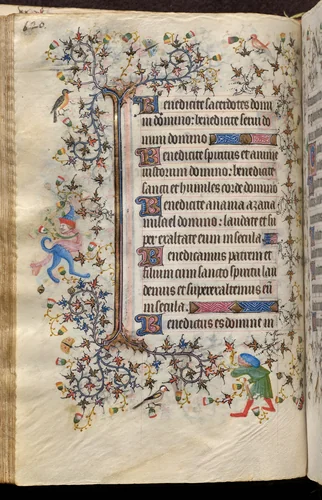 620.
Benedicite sacerdotes domi
ni domino: benedicite serui do
mini domino
Benedicite spiritus et anime
iustorum domino: benedicite
sancti et humiles corde domino
Benedicite anania azaria
misael domino: laudate et su
per exaltate eum in secula
Benedicamus patrem et
filium cum sancto spiritu lau
demus et superexaltemus eū
in secula.
Benedictus es domine in